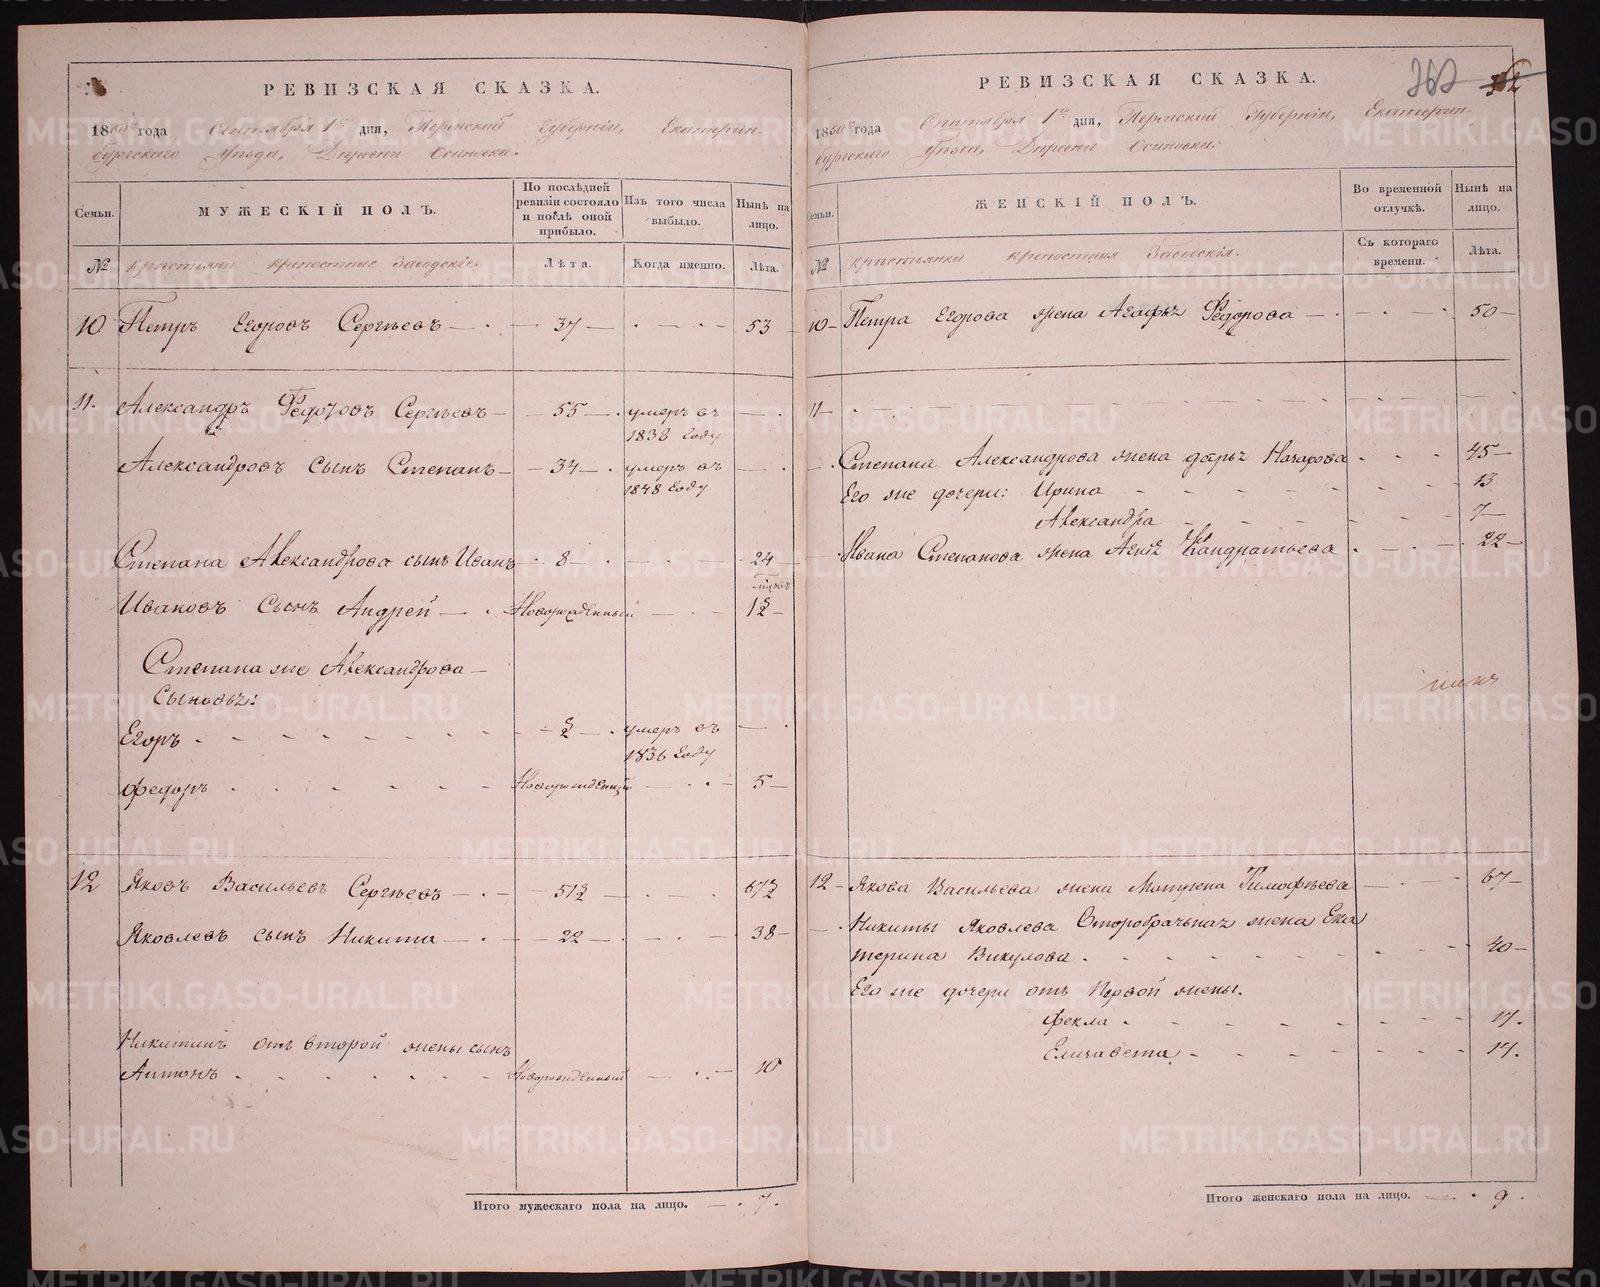 РЕВИЗСКАЯ СКАЗКА.
1850 года Сентября 1го дня, Пермской Губернии, Екатерин-
бургскаго Уезда, Деревни Осиновки.
Семьи.
МУЖЕСКІЙ ПОЛЪ.
По послѣдней ревизіи состояло и послѣ оной прибыло.
Изъ того числа выбыло.
Нынѣ на лицо.
№ Крестьяни крепостные Заводскіе.
Лѣта.
Когда именно.
Лѣта.
10 Петръ Егоровъ Сергѣевъ — 37 — 53
11. Александръ Федотовъ Сергѣевъ — 55 — умеръ въ
1838 году
Александровъ сынъ Степанъ — 34 — умеръ въ
1848 году
Степана Александрова сынъ Иванъ 8 — 24
Ивановъ сынъ Андрей — Новорожденный — 1½
Степана же Александрова —
Сыновья:
Егоръ — ½ — умеръ въ
1836 году
Федоръ Новорожденный — 5 —
12 Яковъ Васильевъ Сергѣевъ — 51½ 67½
Яковлевъ сынъ Никита — 22 — 38 —
Никитинъ отъ второй жены сынъ
Антонъ Новорожденный — 10
Итого мужескаго пола на лицо. — 7.
РЕВИЗСКАЯ СКАЗКА.
362
1850 года Сентября 1го дня, Пермской Губерніи, Екатерин-
бургскаго Уезда, Деревни Осиновки.
Семьи.
ЖЕНСКІЙ ПОЛЪ.
Во временной отлучкѣ.
Нынѣ на лицо.
№ Крестьянки крепостныя Заводскія.
Съ котораго времени.
Лѣта.
10 — Петра Егорова жена Агафья Федорова — 50 —
11 —
Степана Александрова жена Дарья Назарова 45 —
Его же дочери: Ирина 13
Александра 7 —
Ивана Степанова жена Кандратьева 22 —
12 — Якова Васильева жена Матрена Тимофѣева — 67 —
Никиты Яковлева Второбрачная жена Ека
терина Викулова 40 —
Его же дочери отъ Первой жены.
Фекла 17.
Елизавета 14.
Итого женскаго пола на лицо. — 9.
METRIKI.GASO-URAL.RU